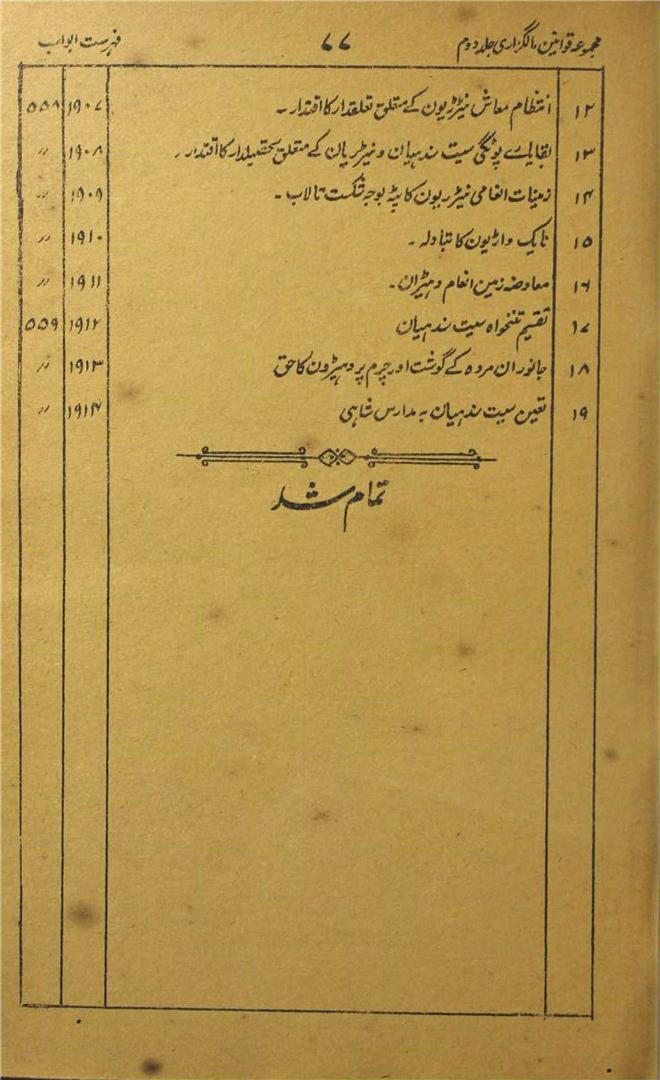 مجموعہ قوانین مالگزاری جلد دوم ۷۷ فہرست ابواب
۱۲ انتظام معاش نیٹرڑیون کے متعلق تعلقدار کا اقتدار ۔ ۱۹۰۷ ۵۵۸
۱۳ بقایاے پونگی سیت سندہیان و نیٹرریان کے متعلق تحصیلدار کا اقتدار ۔ ۱۹۰۸ ״
۱۴ زمینات انعامی نیٹرریون کا پٹہ بوجہ شکست تالاب ۔ ۱۹۰۹ ״
۱۵ نایک واڑیون کا تبادلہ ۔ ۱۹۱۰ ״
۱۶ معاوضہ زمین انعام دہیڑان ۔ ۱۹۱۱ ״
۱۷ تقسیم تنخواہ سیت سندہیان ۱۹۱۲ ۵۵۹
۱۸ جانوران مردہ کے گوشت اور چرم پر دہیڑون کا حق ۱۹۱۳ ״
۱۹ تعین سیت سندہیان بہ مدارس شاہی ۱۹۱۴ ״
تمام شد